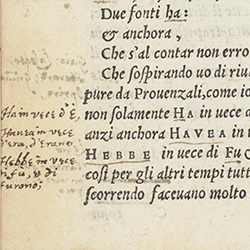 Due fonti ha:
& anchora,
Che s'al contar non erro
Che sospirando uo di riu
pure da Prouenzali, come io
non solamente HA in uece d
anzi anchora HAVEA in t
HEBBE in uece di Fu
così per gli altri tempi tutt
scorrendo faceuano molto
Ha in vece d'È,
Hanea in vece
d'Era, d'Erano
Hebbe in vece
di fu, o di
furono;